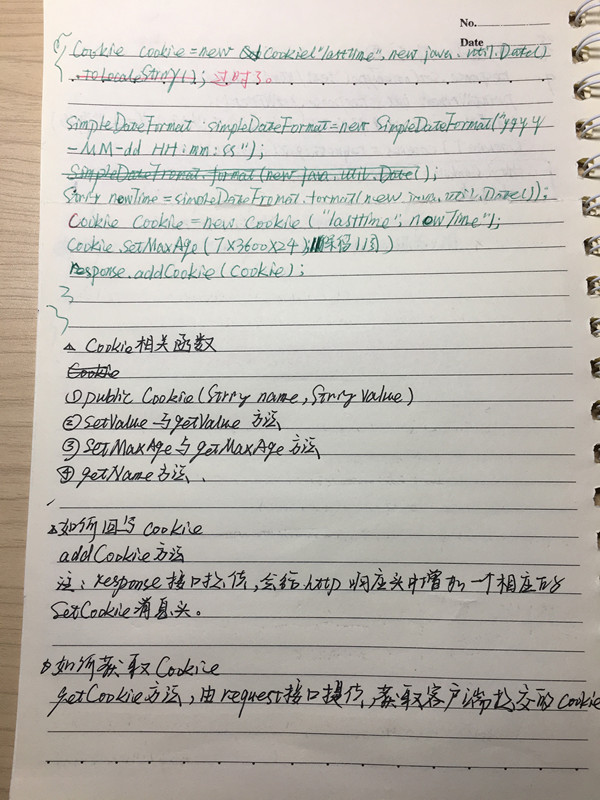 No.
Date
{ Cookie cookie=new Cookie("lasttime",new java.util.Date()
.toLocaleString(); 过时了。
SimpleDateFormat simpleDateFormat=new SimpleDateFormat("yyyy
-MM-dd HH:mm:ss");
SimpleDateFromat.format(new java.util.Date();
String nowTime=simpleDateFromat.format(new java.util.Date());
Cookie Cookie=new Cookie ("lasttime", nowTime");
Cookie.setMaxAge(7X3600X24);
response.addCookie(cookie);
}
}
Cookie相关函数
Cookie
①public Cookie(String name,String value)
②SetValue与getValue 方法
③SetMaxAge与getMaxAge方法
④getName方法.
如何回写 Cookie
addCookie方法
注:response接口提供,会给http响应头中增加一个相应的
SetCookie消息头。
如何获取Cookie
getCookie方法,由request接口提供,获取客户端提交的Cookie